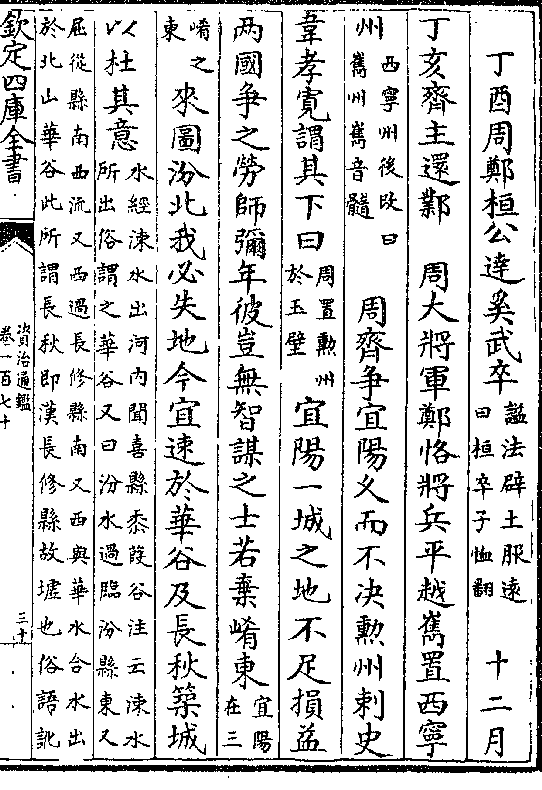 丁酉周鄭桓公達奚武卒諡法辟土服遠曰桓卒子恤翻十二月
丁亥齊主還鄴 周大將軍鄭恪將兵平越巂置西寧
州西寧州後改曰巂州巂音髓 周齊爭宜陽久而不決勲州刺史
韋孝寛謂其下曰周置勲州於玉壁宜陽一城之地不足損益
两國爭之勞師彌年彼豈無智謀之士若棄崤東宜陽在三
崤之東來圖汾北我必失地今宜速於華谷及長秋築城
以杜其意水經涑水出河内聞喜縣黍葭谷注云涑水所出俗謂之華谷又曰汾水過臨汾縣東又
屈從縣南西流又西過長修縣南又西與華水合水出於北山華谷此所謂長秋即漢長修縣故墟也俗語訛
欽定四庫全書
資治通鑑
卷一百七十
三十